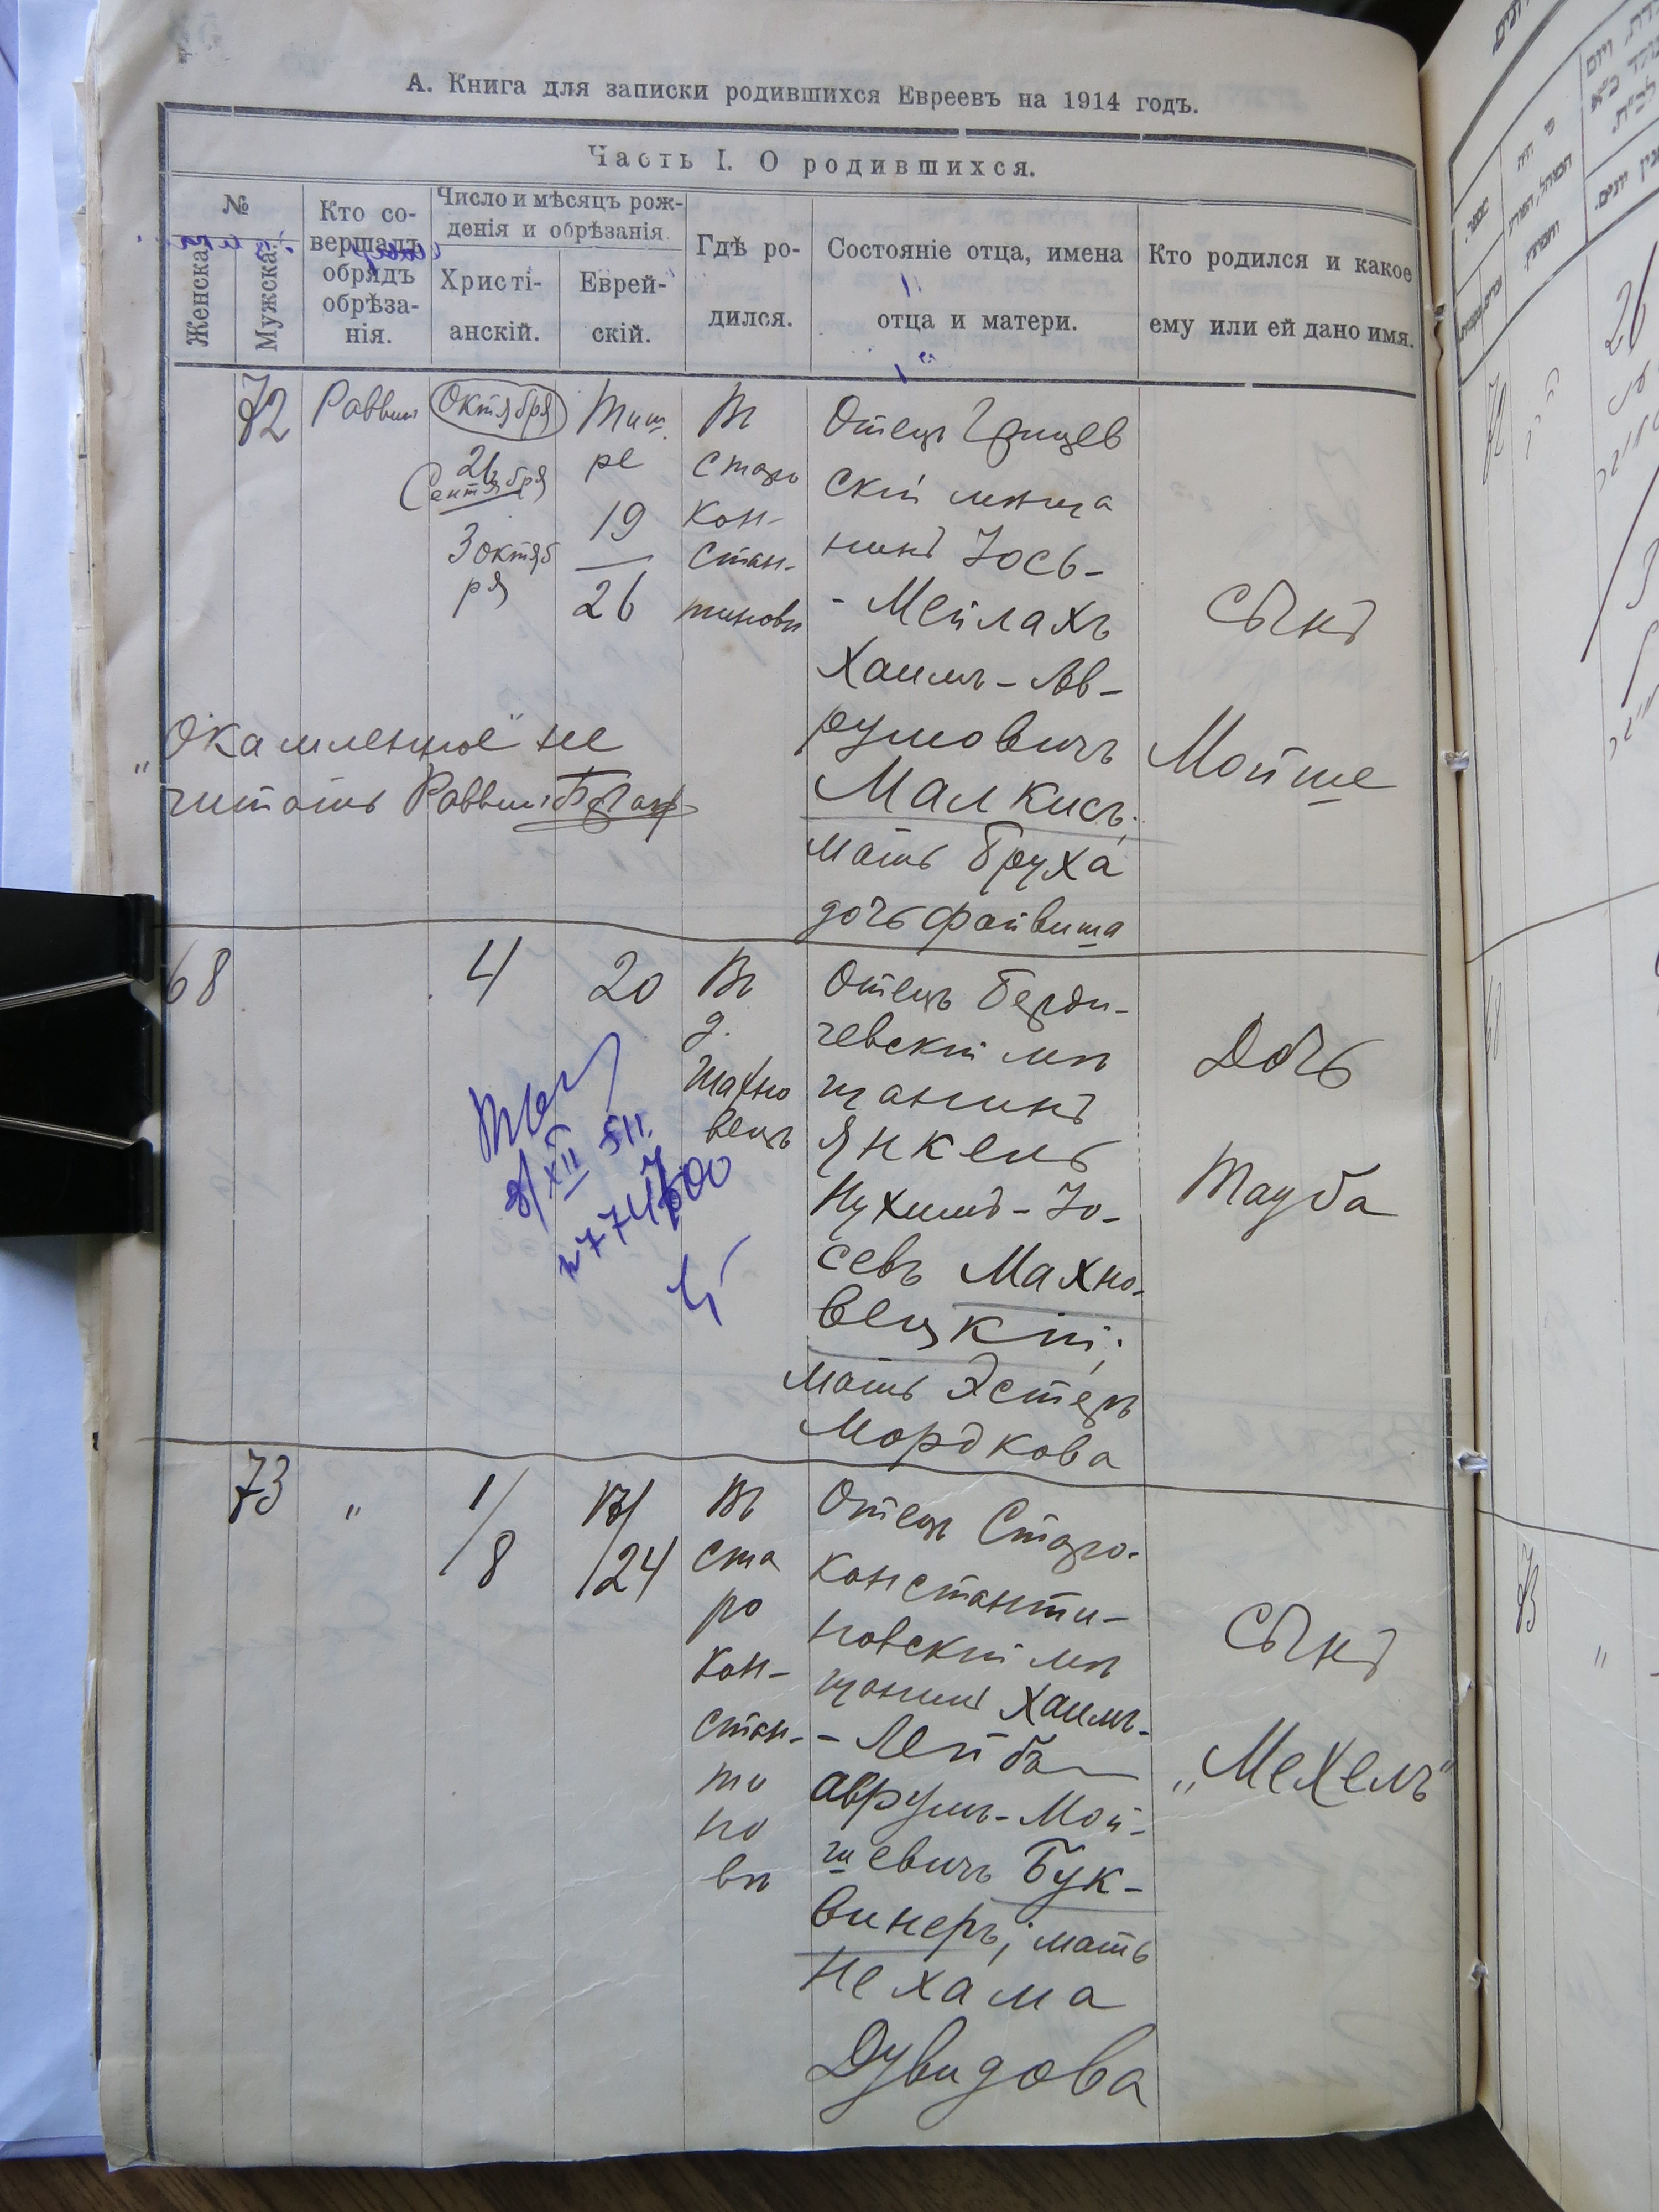 А. Книга для записки родившихся Евреевъ на 1914 годъ.
Часть I. О родившихся.
№
Женска.
Мужска.
Кто со-
вершалъ
обрядъ
обрѣза-
нія.
Число и мѣсяцъ рож-
денія и обрѣзанія
Христі-
анскій.
Еврей-
скій.
Гдѣ ро-
дился.
Состояніе отца, имена
отца и матери.
Кто родился и какое
ему или ей дано имя.
72
Раввин
Октября
26
Сентября
3 октяб
ря
Тиш
ре
19
26
Въ
Старо
Кон-
стан-
тиновѣ
Отецъ Грицев
скій мѣща
нинъ Іось-
- Мейлахъ
Хаимъ - Ав-
румовичъ
Малкисъ;
мать Бруха
дочь Файвиша
Сынъ
Мойше
"Окаймленное" не
читать Раввин
68
4
20
Въ
д.
Махно
вецъ
Отецъ Берди-
чевскій мѣ
щанинъ
Янкель
Нухимъ - Іо-
севъ Махно-
вецкій;
мать Эстеръ
Мордкова
Дочь
Тауба
73
"
1/
/8
/24
Въ
Ста
ро
Кон-
стан-
ти
но
вѣ
Отецъ Старо-
константи-
новскій мѣ
щанинъ Хаимъ-
- Лейба
Аврумъ - Мой-
шевичъ Бук-
винеръ; мать
Нехама
Дувидова
Сынъ
„Мехель“